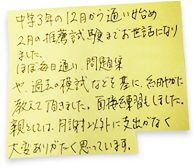 中学3年の12月から通い始め
2月の推薦試験までお世話になり
ました。
ほぼ毎日通い、問題集
や、過去の模試などを基に、細やかに
教えて頂きました。面接練習しました。
親としては、月謝以外に支出がなく
大変ありがたく思っています。